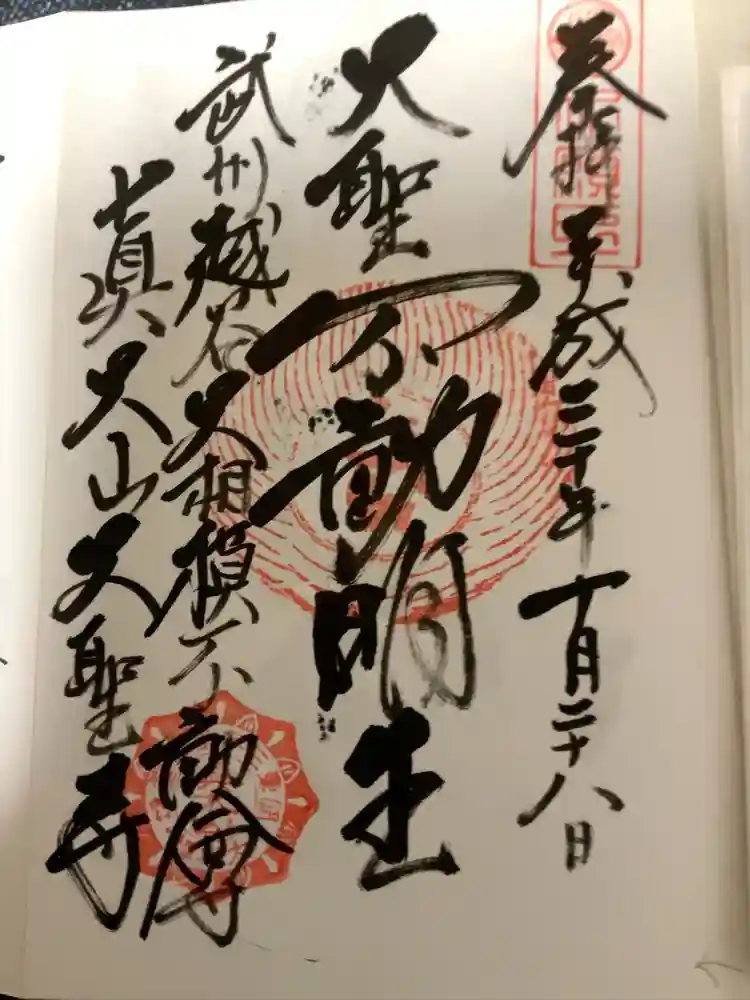 奉拝 平成三十年十月二十八日
大聖不動明王
武州越谷大相模不動尊
真大山大聖寺